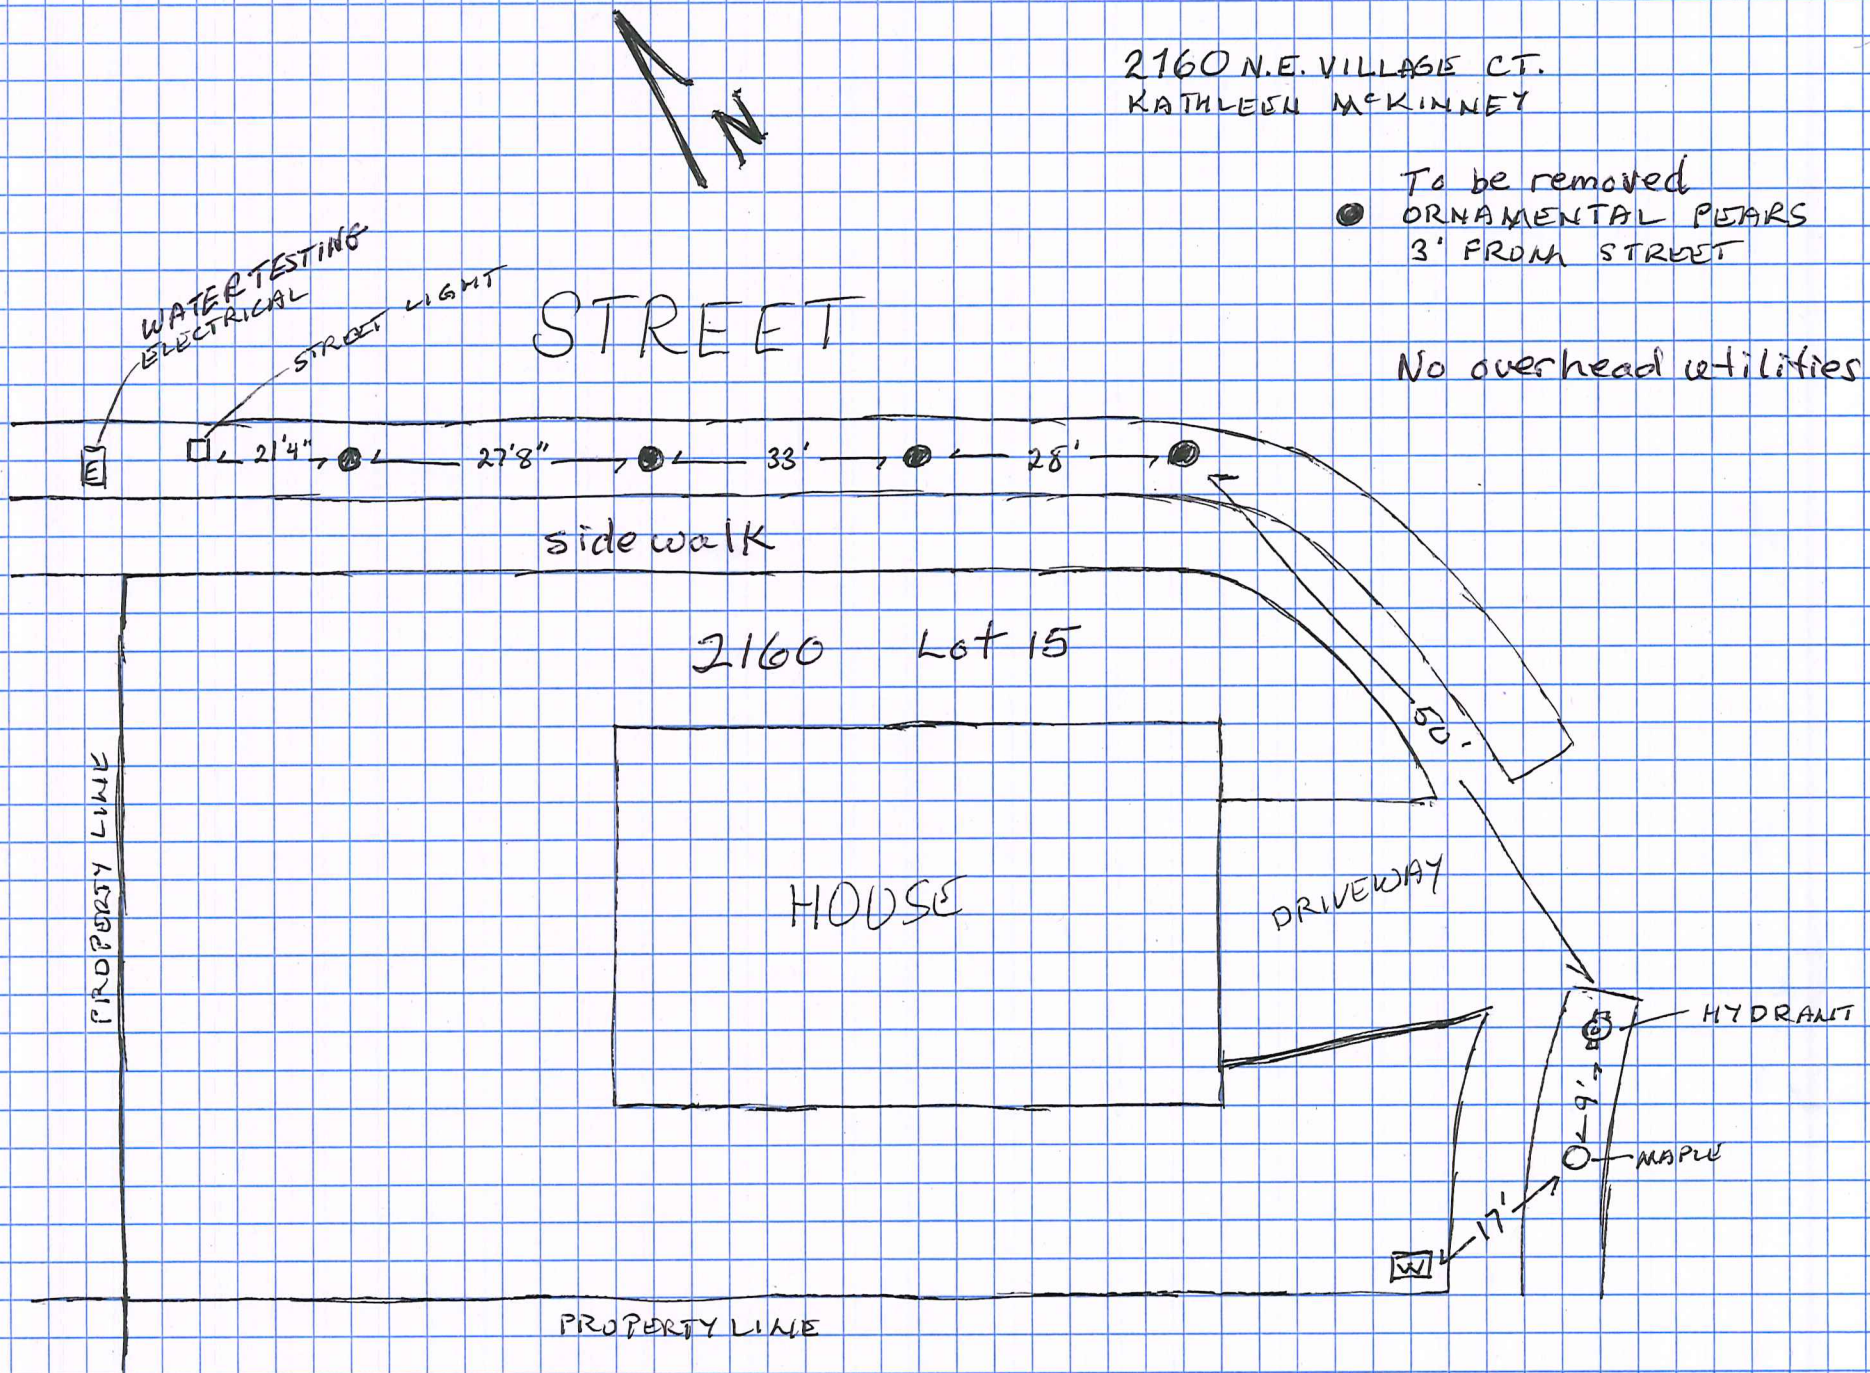 N
2160 N.E. VILLAGE CT.
KATHLEEN McKINNEY
To be removed
ORNAMENTAL PEARS
3' FROM STREET
WATER TESTING
ELECTRICAL
STREET LIGHT
STREET
No overhead utilities
E
21'4"
27'8"
33'
28'
sidewalk
2160 Lot 15
50'
PROPERTY LINE
HOUSE
DRIVEWAY
HYDRANT
9'
MAPLE
17'
W
PROPERTY LINE